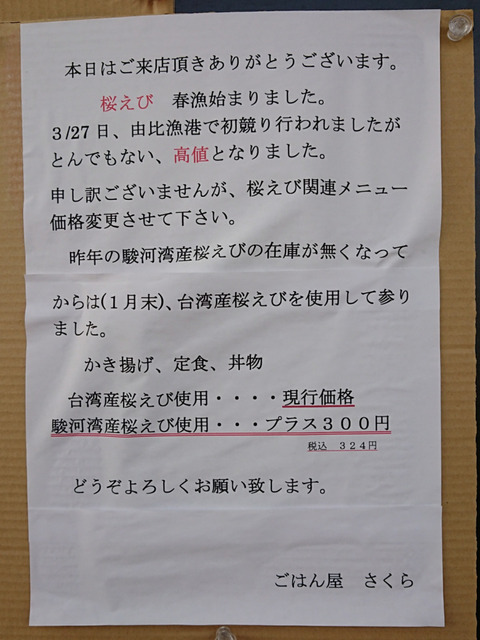 本日はご来店頂きありがとうございます。
桜えび　春漁始まりました。
３/27日、由比漁港で初競り行われましたが
とんでもない、高値となりました。
申し訳ございませんが、桜えび関連メニュー
価格変更させて下さい。
昨年の駿河湾産桜えびの在庫が無くなって
からは(１月末)、台湾産桜えびを使用して参り
ました。
かき揚げ、定食、丼物
台湾産桜えび使用・・・・現行価格
駿河湾産桜えび使用・・・プラス３００円
税込　３２４円
どうぞよろしくお願い致します。
ごはん屋　さくら